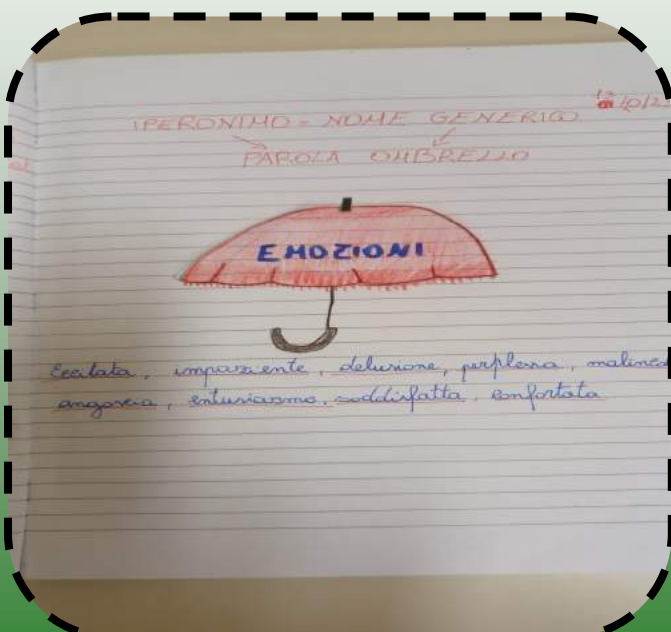 IPERONIMO = NOME GENERICO
PAROLA OMBRELLO
EMOZIONI
Eccitata, impaziente, delusione, perplessa, malinco
angoscia, entusiasmo, soddisfatta, confortata